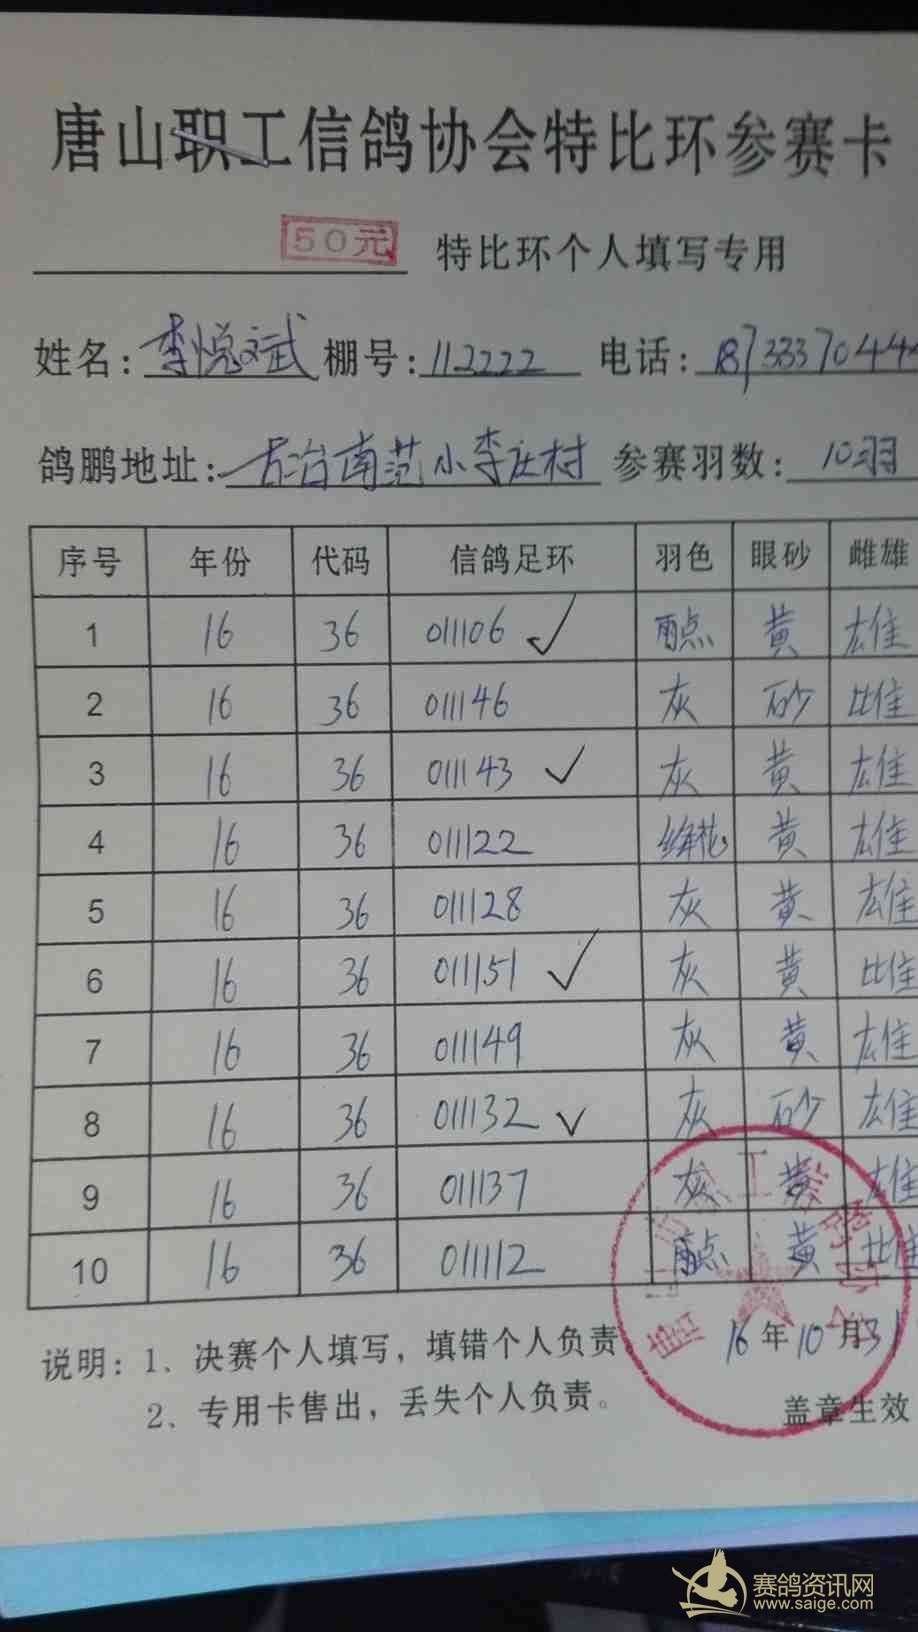 唐山职工信鸽协会特比环参赛卡
50元 特比环个人填写专用
姓名：李悦斌 棚号：112222 电话：187333704
鸽鹏地址：古冶南范小李庄村 参赛羽数：10羽
序号 年份 代码 信鸽足环 羽色 眼砂 雌雄
1 16 36 011106 ✓ 雨点 黄 雄
2 16 36 011146 灰 砂 雌
3 16 36 011143 ✓ 灰 黄 雄
4 16 36 011122 绛花 黄 雄
5 16 36 011128 灰 黄 雄
6 16 36 011151 ✓ 灰 黄 雌
7 16 36 011149 灰 黄 雄
8 16 36 011132 ✓ 灰 砂 雄
9 16 36 011137 灰 黄 雄
10 16 36 011112 雨点 黄 雌
说明：1、决赛个人填写，填错个人负责
16年10月31
2、专用卡售出，丢失个人负责。
盖章生效
赛鸽资讯网
www.saige.com